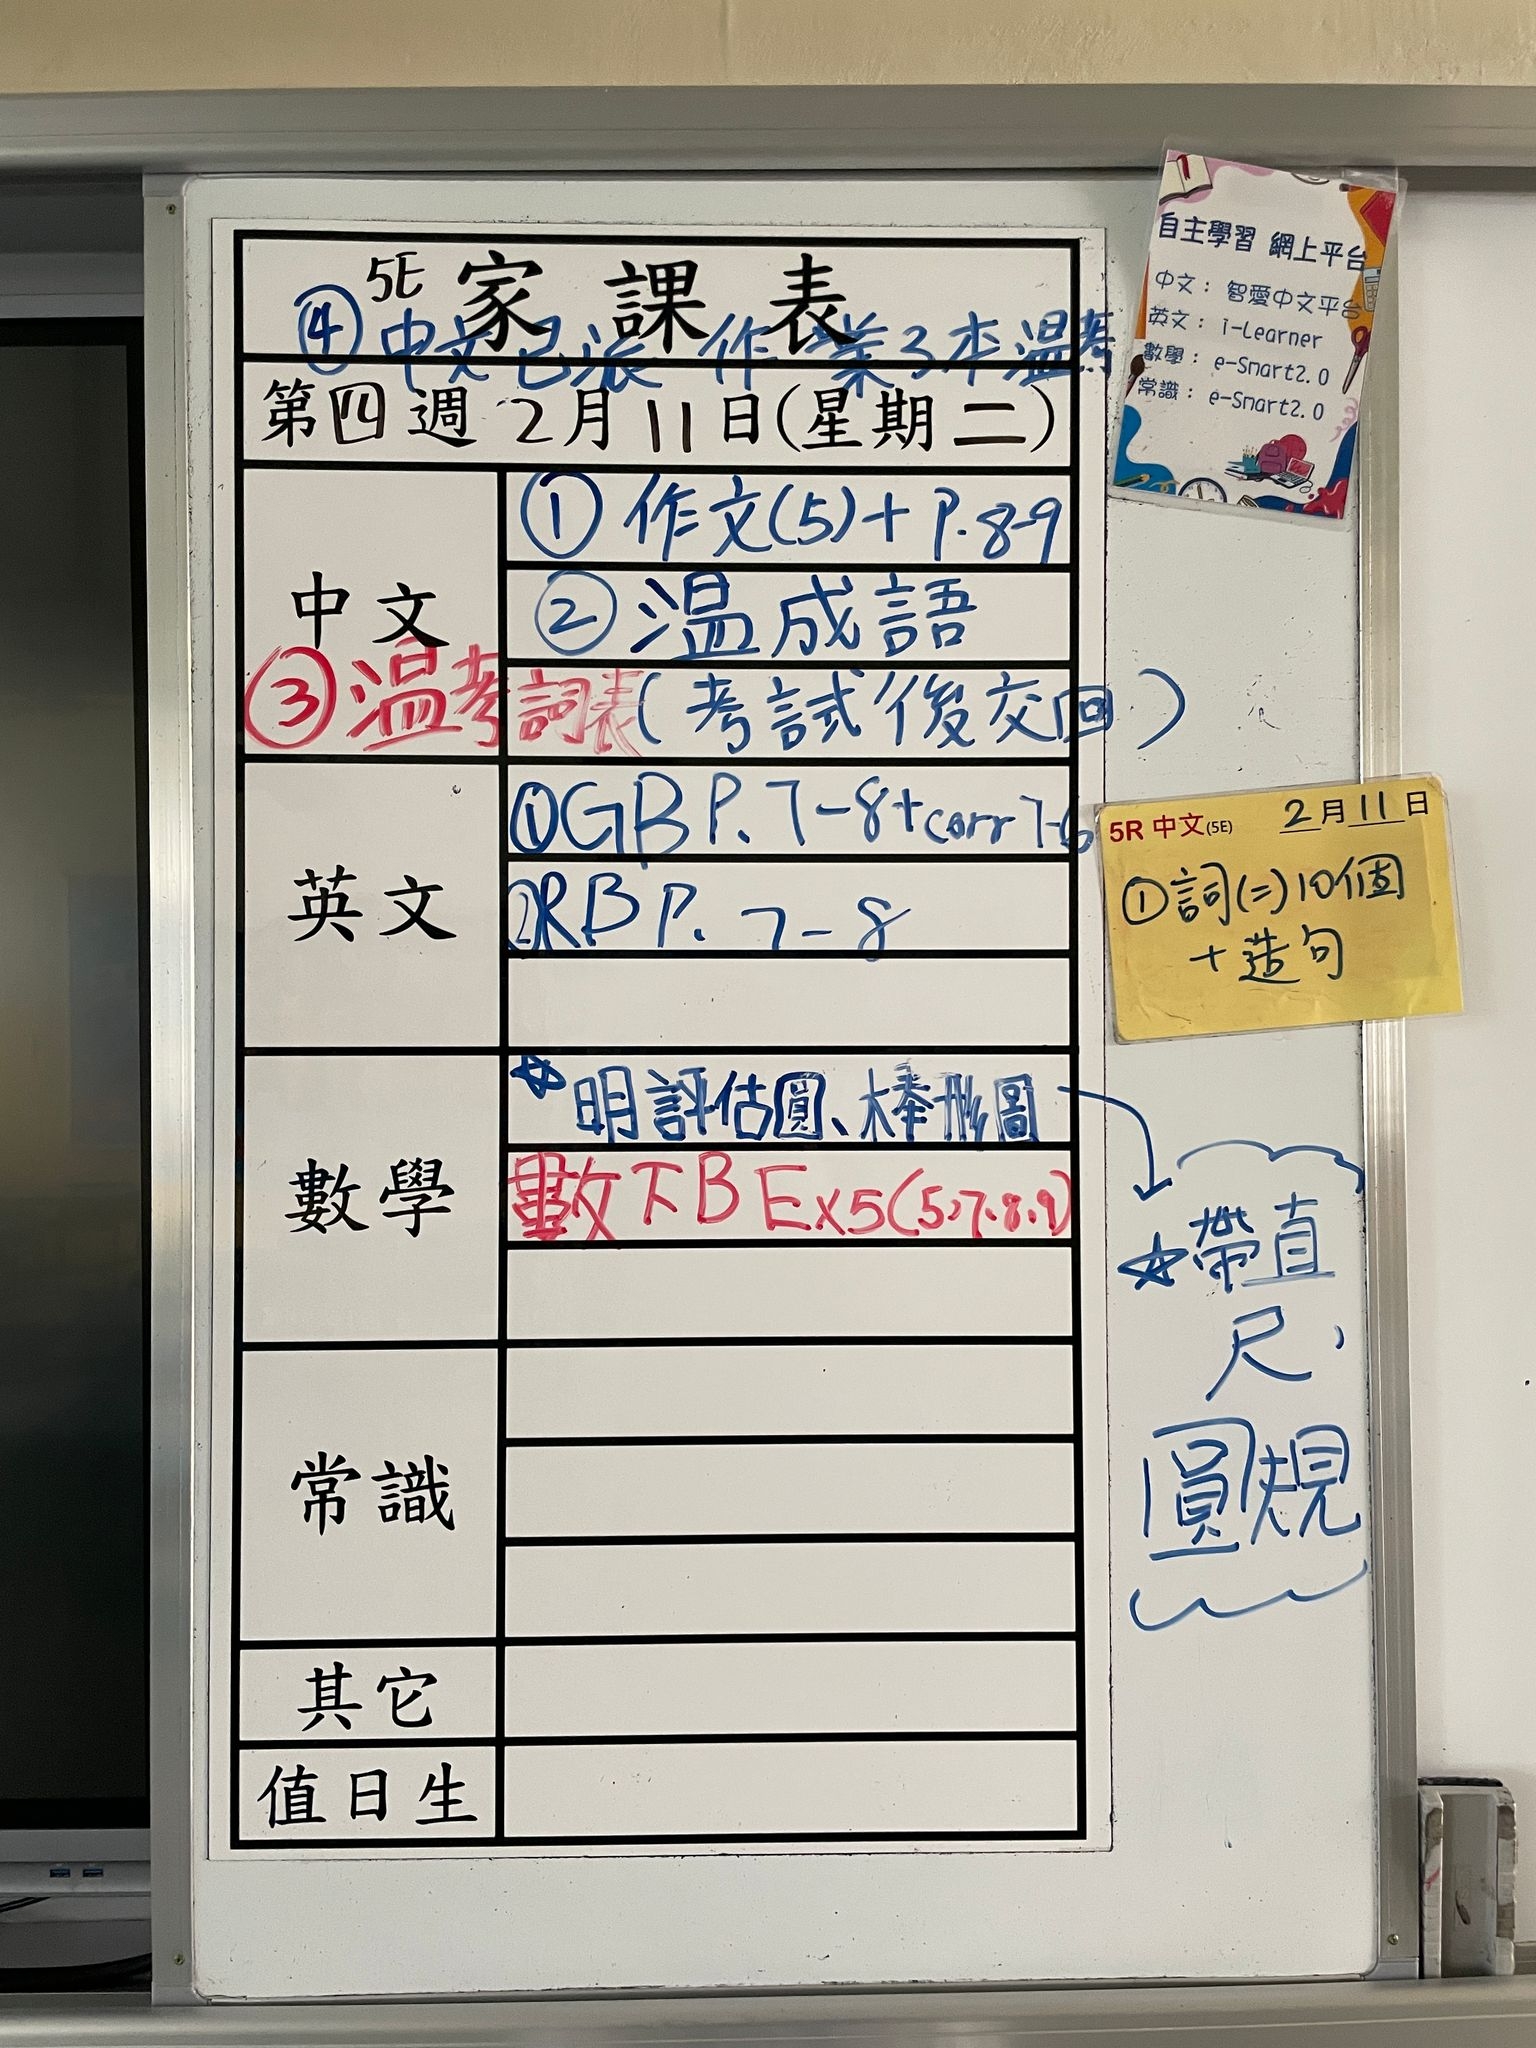 5E 家課表
④ 中文已派作業3本溫考
第四週 2月11日(星期二)
中文
① 作文(5)+ P.8-9
② 溫成語
③ 溫考詞表(考試後交回)
英文
① GB P. 7-8 + corr 7-6
② RB P. 7-8
數學
☆ 明評估圓、棒形圖
數下B Ex5(5,7,8,9)
☆ 帶直
尺、
圓規
常識
其它
值日生
自主學習 網上平台
中文: 智愛中文平台
英文: i-Learner
數學: e-Smart2.0
常識: e-Smart2.0
5R 中文(5E) 2月11日
① 詞(二)10個
+造句